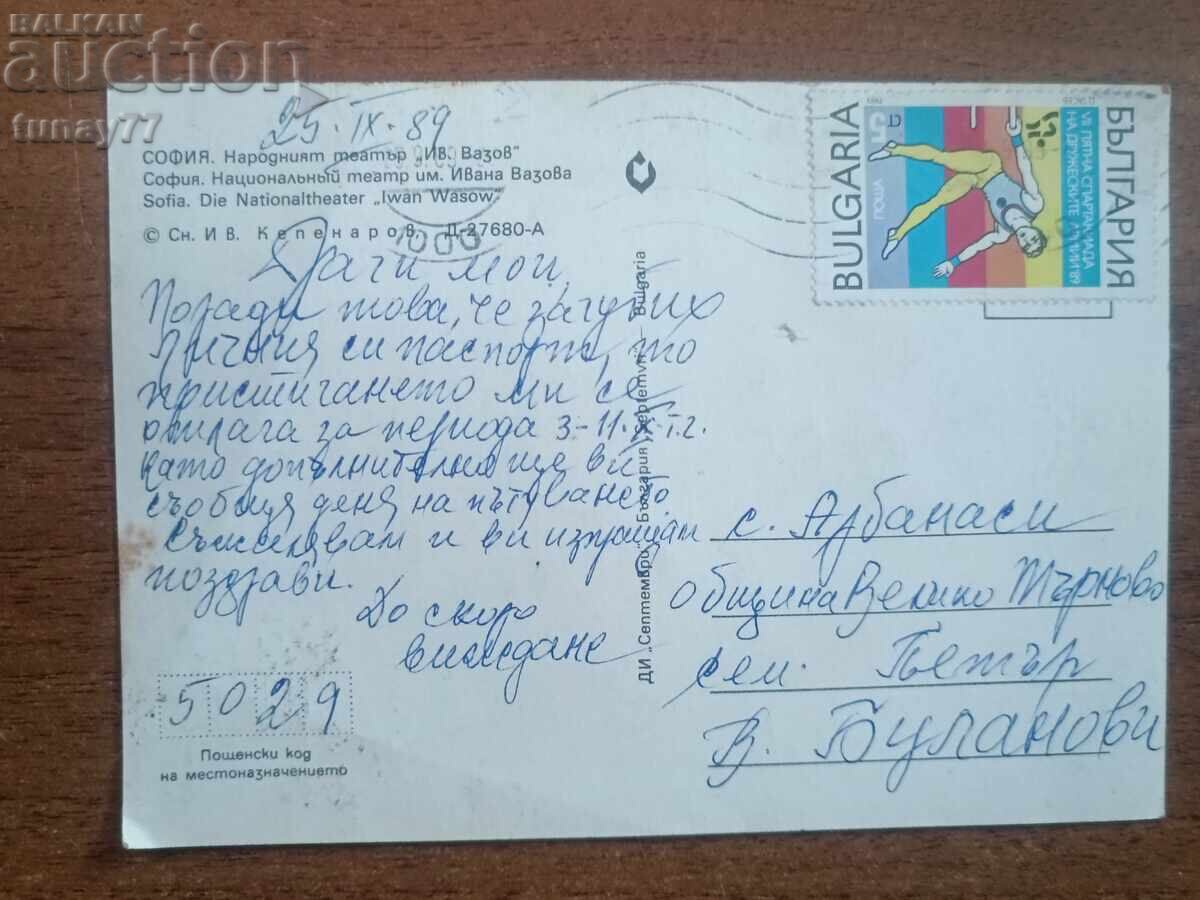 BALKAN
auction
tunay77
25.IX.89
СОФИЯ. Народният театър „Ив. Вазов"
София. Национальный театр им. Ивана Вазова
Sofia. Die Nationaltheater „Iwan Wasow"
© Сн. Ив. Кепенаров. Д-27680-А
1000
Драги мои,
Поради това, че загубих
личния си паспорт, то
пристигането ми се
отлага за периода 3-11.
като допълнително ще ви
съобщя деня на пътуването
Съжелявам и ви изпращам
поздрави.
До скоро
виждане
5029
Пощенски код
на местоназначението
ДИ „Септември" България Septemvri Bulgaria
BULGARIA
5
ПОЩА
VII ЛЯТНА СПАРТАКИАДА
НА ДРУЖЕСКИТЕ АРМИИ '89
БЪЛГАРИЯ
с. Арбанаси
община Велико Търново
сем. Петър
В. Буланови